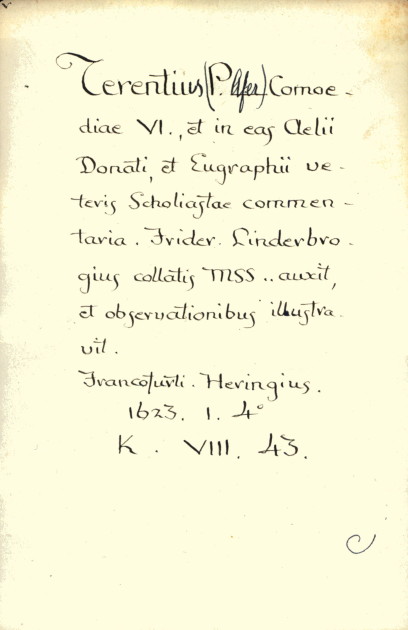 Terentius (P. Afer) Comoe-
diae VI., et in eas Aelii
Donati, et Eugraphii ve-
teris Scholiastae commen-
taria. Frider. Linderbro-
gius collatis MSS.. auxit,
et observationibus illustra-
vit.
Francofurti. Heringius.
1623. 1. 4°
K. VIII. 43.